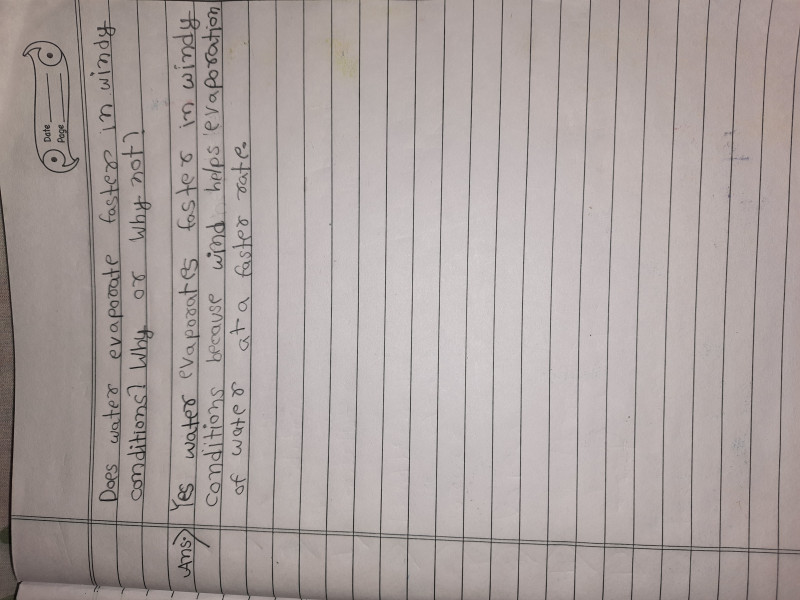 Date
Page
Does water evaporate faster in windy
conditions? Why or why not?
Ans:) Yes water evaporates faster in windy
conditions because wind helps evaporation
of water at a faster rate.